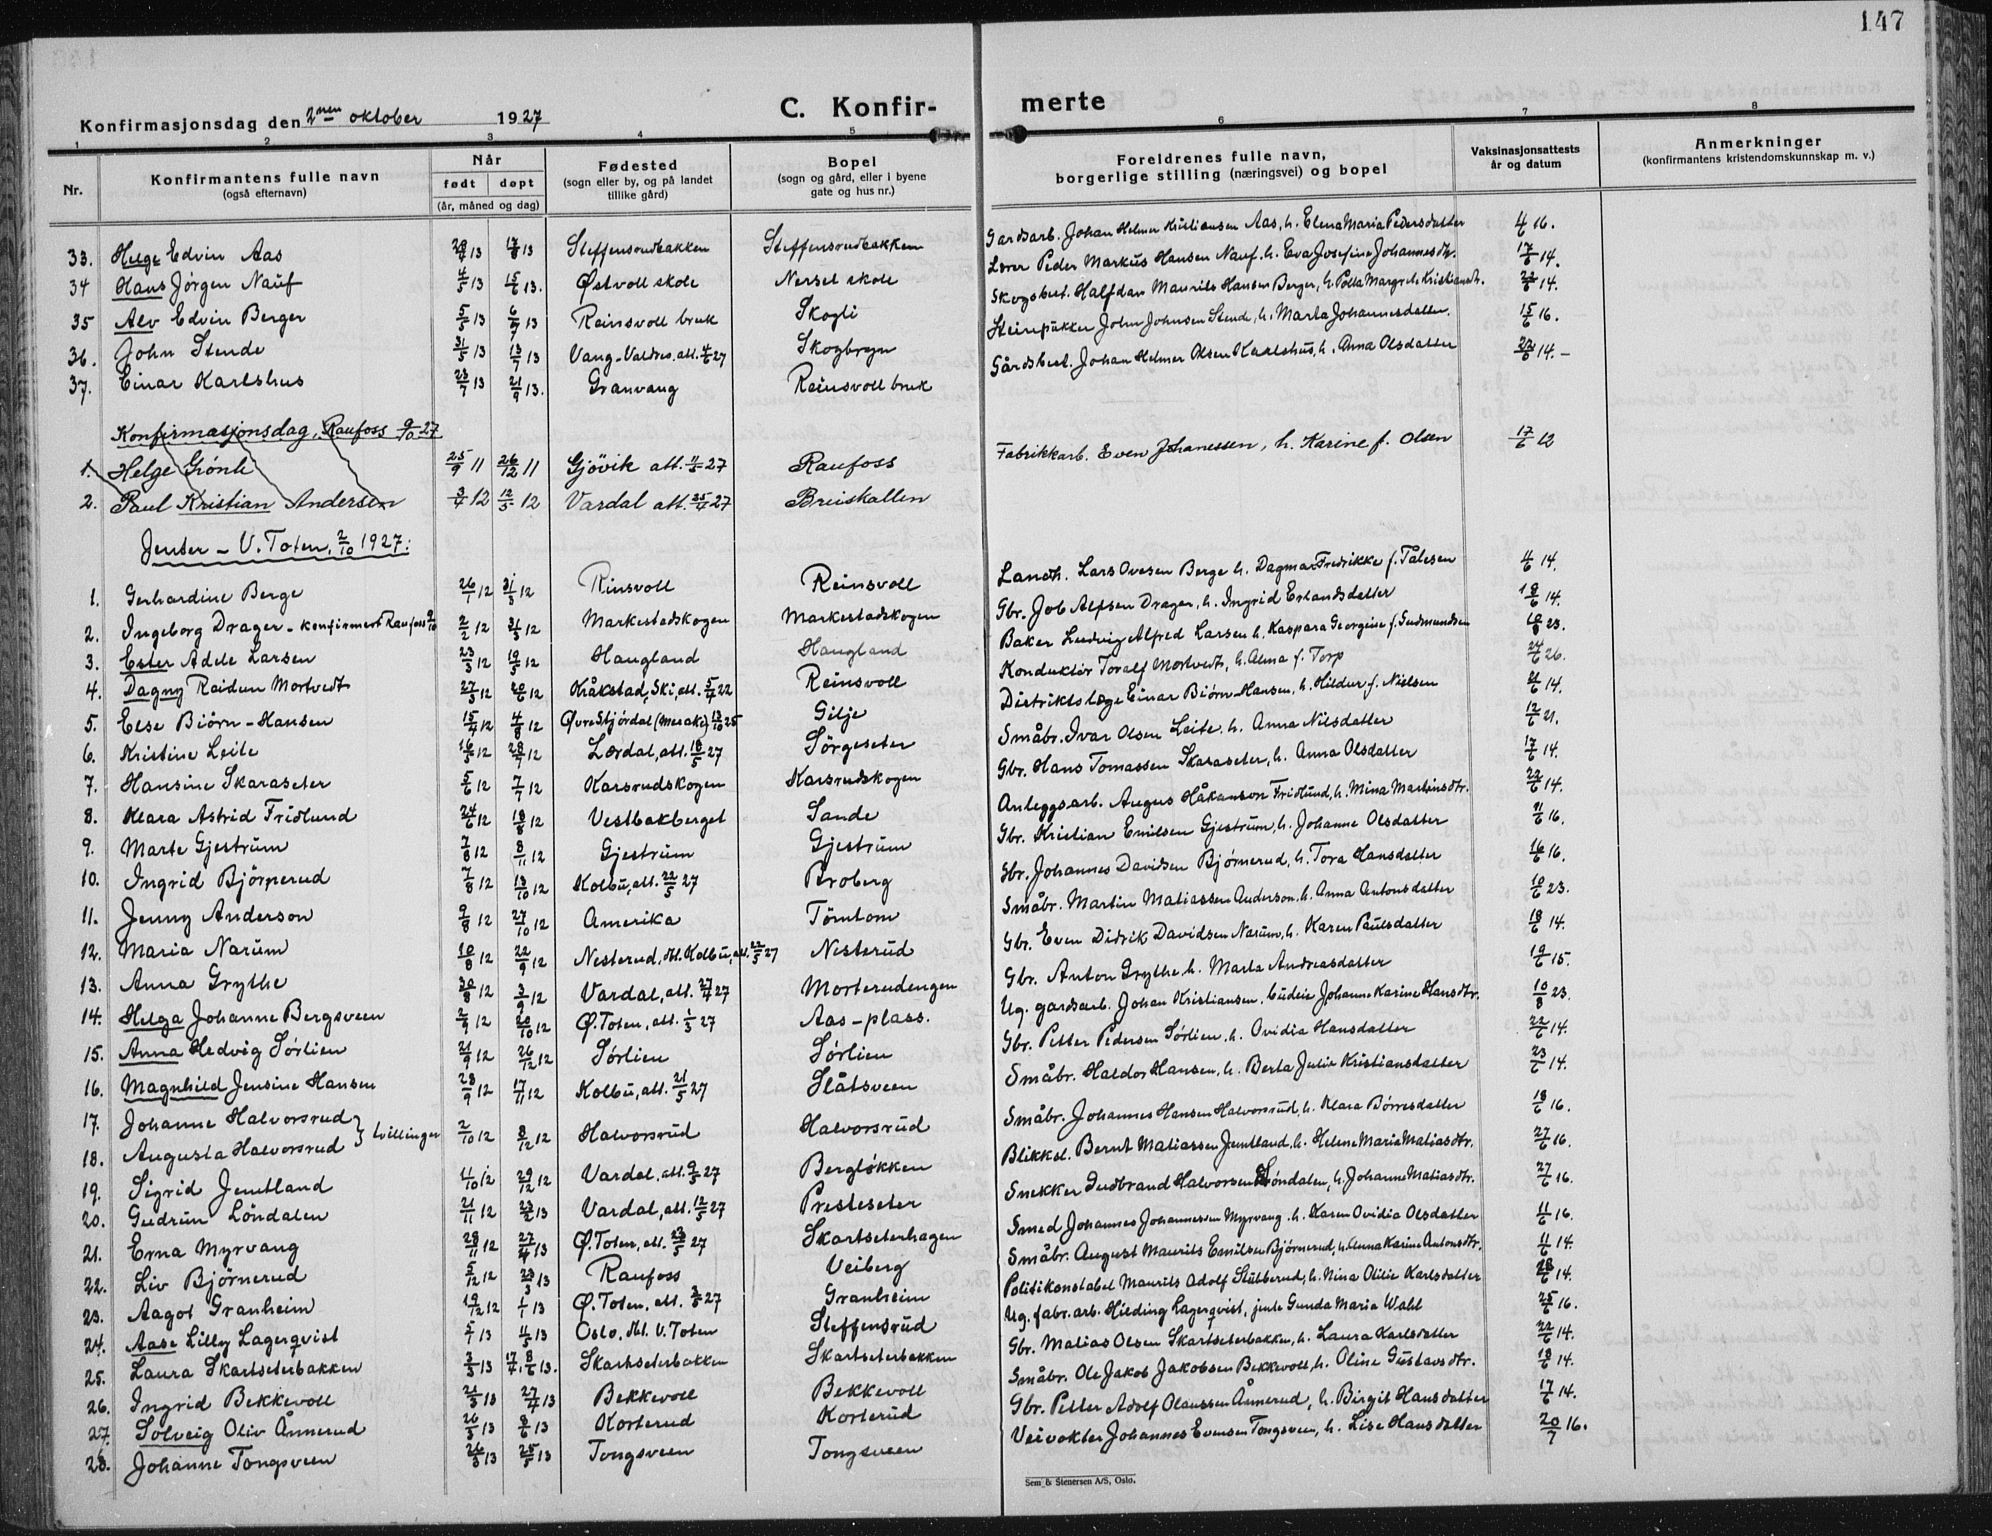 147
Konfirmasjonsdag den 2nen oktober 1927
C. Konfirmerte
1 2 3 4 5 6 7 8
Nr. | Konfirmantens fulle navn (også efternavn) | Når født | døpt (år, måned og dag) | Fødested (sogn eller by, og på landet tillike gård) | Bopel (sogn og gård, eller i byene gate og hus nr.) | Foreldrenes fulle navn, borgerlige stilling (næringsvei) og bopel | Vaksinasjonsattests år og datum | Anmerkninger (konfirmantens kristendomskunnskap m. v.)
33. Helge Edvin Aas 13 13 Steffensrudbakken Steffensrudbakken Gardsarb. Johan Helmer Kristiansen Aas, h. Elena Maria Pedersdatter 4/6 16.
34 Hans Jörgen Nauf 4/5 13 15/6 13. Østvoll skole Nersel skole Lærer Peder Markus Hansen Nauf. h. Eva Josefine Johannesdtr. 17/6 14.
35 Alv Edvin Berger 5/5 13 6/7 13 Reinsvoll bruk Skogli Skogsbest. Halfdan Maurits Hansen Berger, h. Kristiansdtr. 22/6 14.
36. John Stende 31/5 13 13/7 13 Vang-Valdres, att. 4/5 27 Skogbryn Steinpukker John Johnsen Stende, h. Marta Johannesdatter. 15/6 16.
37. Einar Karlshus 23/7 13 21/9 13. Granvang Reinsvoll bruk Gårdsbest. Johan Helmer Olsen Karlshus, h. Anna Olsdatter 22/6 14.-
Konfirmasjonsdag, Raufoss 9/10 27
1. Helge Grönli 25/9 11 26/12 11 Gjövik att. 11/5 27 Raufoss Fabrikkarb. Even Johanessen, h. Karine f. Olsen 17/6 12
2. Paul Kristian Andersen 3/4 12 12/5 12 Vardal att. 25/4 27 Breiskallen
Jenter - V. Toten, 2/10 1927:
1. Gerhardine Berge 26/1 12 31/3 12 Rinsvoll Reinsvoll Landh. Lars Ovesen Berge h. Dagmar Fredrikke f. Talesen 4/6 14.
2. Ingeborg Drager - konfirmert Raufoss 9/10 2/2 12 31/3 12 Markestadskogen Markestadskogen Gbr. Job Alfsen Drager, h. Ingrid Erlandsdatter 18/6 14.
3. Ester Adele Larsen 23/3 12 19/5 12 Haugland Haugland Baker Ludvig Alfred Larsen h. Kaspara Georgine f. Gudmundsen 10/8 23.
4. Dagny Reidun Mortvedt 27/3 12 20/6 12 Kråkstad, Ski, att. 5/4 22 Reinsvoll Konduktör Toralf Mortvedt, h. Alma f. Torp 24/6 26.
5. Else Biörn-Hansen 15/4 12 4/8 12 Øvre Stjördal (Meraker) 13/10 25 Gilje Distriktslæge Einar Biørn-Hansen, h. Hildur f. Nielsen 21/6 14.
6. Kristine Leite 16/5 12 28/7 12 Lærdal, att. 18/5 27 Sörgeseter Småbr. Ivar Olsen Leite. h. Anna Nilsdatter 12/6 21.
7. Hansine Skaraseter 5/6 12 7/7 12 Karsrudskogen Karsrudskogen Gbr. Hans Tomassen Skaraseter, h. Anna Olsdatter 17/6 14.
8. Klara Astrid Fridlund 24/6 12 18/8 12 Vestbakberget Sande Anleggsarb. August Håkanson Fridlund, h. Mina Martinsdtr. 22/6 14.
9. Marte Gjestrüm 7/8 12 8/11 12 Gjestrüm Gjestrüm Gbr. Kristian Emilsen Gjestrüm, h. Johanne Olsdatter 11/6 16.
10. Ingrid Björnerud 7/8 12 13/10 12 Kolbü, att. 22/5 27 Broberg Gbr. Johannes Davidsen Bjørnerud, h. Tora Hansdatter 16/6 16.
11. Jenny Anderson 9/8 12 27/10 12 Amerika Tömtom Småbr. Martin Matiassen Anderson, h. Anna Antonsdatter 10/6 23.
12. Maria Narüm 10/8 12 22/9 12 Nesterud, dbl. Kolbu, att. 22/5 27 Nesterud Gbr. Even Didrik Davidsen Narüm, h. Karen Paulsdatter 18/6 14.
13. Anna Grythe 30/8 12 3/9 12 Vardal, att. 27/4 27 Morterudengen Gbr. Anton Grythe h. Marta Andreasdatter 19/6 15.
14. Helga Johanne Bergsveen 2/9 12 20/10 12 Ø. Toten, att. 1/3 27 Aas-plass. Ug. gardsarb. Johan Kristiansen, budeie Johanne Karine Hansdtr. 10/8 23.
15. Anna Hedvig Sørlien 21/9 12 26/12 12 Sørlien Sørlien Gbr. Petter Pedersen Sørlien, h. Ovidia Hansdatter 22/6 14.
16. Magnhild Jensine Hansen 28/9 12 17/11 12 Kolbü, att. 21/5 27 Slåtsveen Småbr. Haldor Hansen, h. Berta Julie Kristiansdatter 23/6 14.
17. Johanne Halvorsrud } tvillinger 2/10 12 8/12 12 Halvorsrüd Halvorsrüd Småbr. Johannes Hansen Halvorsrüd, h. Klara Börresdatter 18/6 16.
18. Augusta Halvorsrud
19. Sigrid Jemtland 11/10 12 29/12 12 Vardal, att. 9/5 27 Bergløkken Blikksl. Bernt Matiassen Jemtland, h. Helene Maria Matiasdtr. 27/6 16.
20. Gudrün Löndalen 21/11 12 23/2 13 Vardal, att. 12/5 27 Presteseter Snekker Gudbrand Halvorsen Löndalen, h. Johanne Matiasdtr. 27/6 16.
21. Erna Myrvang 28/11 12 27/4 13 Ø. Toten, att. 23/5 27 Skartseterhagen Smed Johannes Johannessen Myrvang. h. Karen Ovidia Olsdatter 11/6 16.
22. Liv Bjørnerud 5/12 12 23/3 13 Raufoss Veiberg Småbr. August Maurits Emilsen Bjørnerud, h. Anna Karine Antonsdtr. 11/6 14.
23. Aagot Granheim 19/12 12 1/1 13 Ø. Toten, att. 3/5 27 Granheim Politikonstabel Maurits Adolf Stülberud, h. Nina Otilie Karlsdatter 28/6 14.
24. Aase Lilly Lagerqvist 5/1 13 4/5 13 Oslo, dbl. V. Toten Steffensrüd Ug. fabr. arb. Hilding Lagerqvist, jente Gunda Maria Wahl 25/6 16.
25. Laura Skartseterbakken 3/3 13 17/4, 8/6 13. Skartseterbakken Skartseterbakken Gbr. Matias Olsen Skartseterbakken, h. Laura Karlsdatter 22/6 14.
26. Ingrid Bekkevoll 21/3 13 27/4 13 Bekkevoll Bekkevoll Småbr. Ole Jakob Jakobsen Bekkevoll, h. Oline Güstavsdtr. 18/6 14.
27. Solveig Oliv Ånnerud 26/3 13 8/6 13 Korterud Korterüd Gbr. Petter Adolf Olaussen Ånnerud, h. Birgit Hansdatter 17/6 14.
28. Johanne Tongsveen 26/3 13 25/5 13 Tongsveen Tongsveen Veivokter Johannes Evensen Tongsveen, h. Lise Hansdatter 20/7 16.
Sem & Stenersen A/S, Oslo.